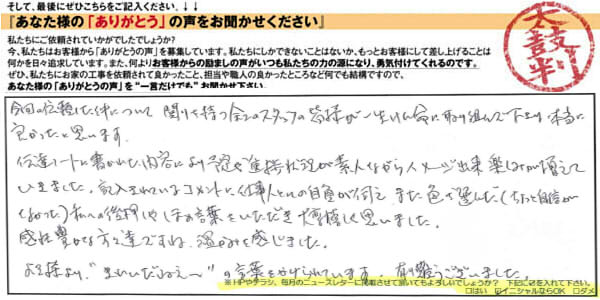 そして、最後にぜひこちらをご記入ください。↓↓
『あなた様の「ありがとう」の声をお聞かせください』
私たちにご依頼されていかがでしたでしょうか?
今、私たちはお客様から「ありがとうの声」を募集しています。私たちにしかできないことはないか、もっとお客様にして差し上げることは
何かを日々追求しています。また、何よりお客様からの励ましの声がいつも私たちの力の源になり、勇気付けてくれるのです。
ぜひ、私たちにお家の工事を依頼されて良かったこと、担当や職人の良かったところなど何でも結構ですので、
あなた様の「ありがとうの声」を“一言だけでも”お聞かせ下さい。
太鼓判
今回の依頼した件について 関りを持つ全てのスタッフの皆様が一生けん命に取り組んで下さり本当に
良かったと思います。
伝達ノートに書かれた内容により 進捗状況が素人ながらイメージ出来 楽しみが増えて
いきました。記入されているコメントに仕事人としての自負が伺え、また色を選んだ(ちょっと自信が
なかった)私への後押しやしの言葉をいただき 大変嬉しく思いました。
感性豊かな方々達ですね。温かみを感じました。
お客様より、“きれいだねえ〜”の言葉をかけられています。有難うございました。
※HPやチラシ、毎月のニュースレターに掲載させて頂いてもよろしいでしょうか? 下記に☑を入れて下さい。
□はい ☑イニシャルならOK □ダメ